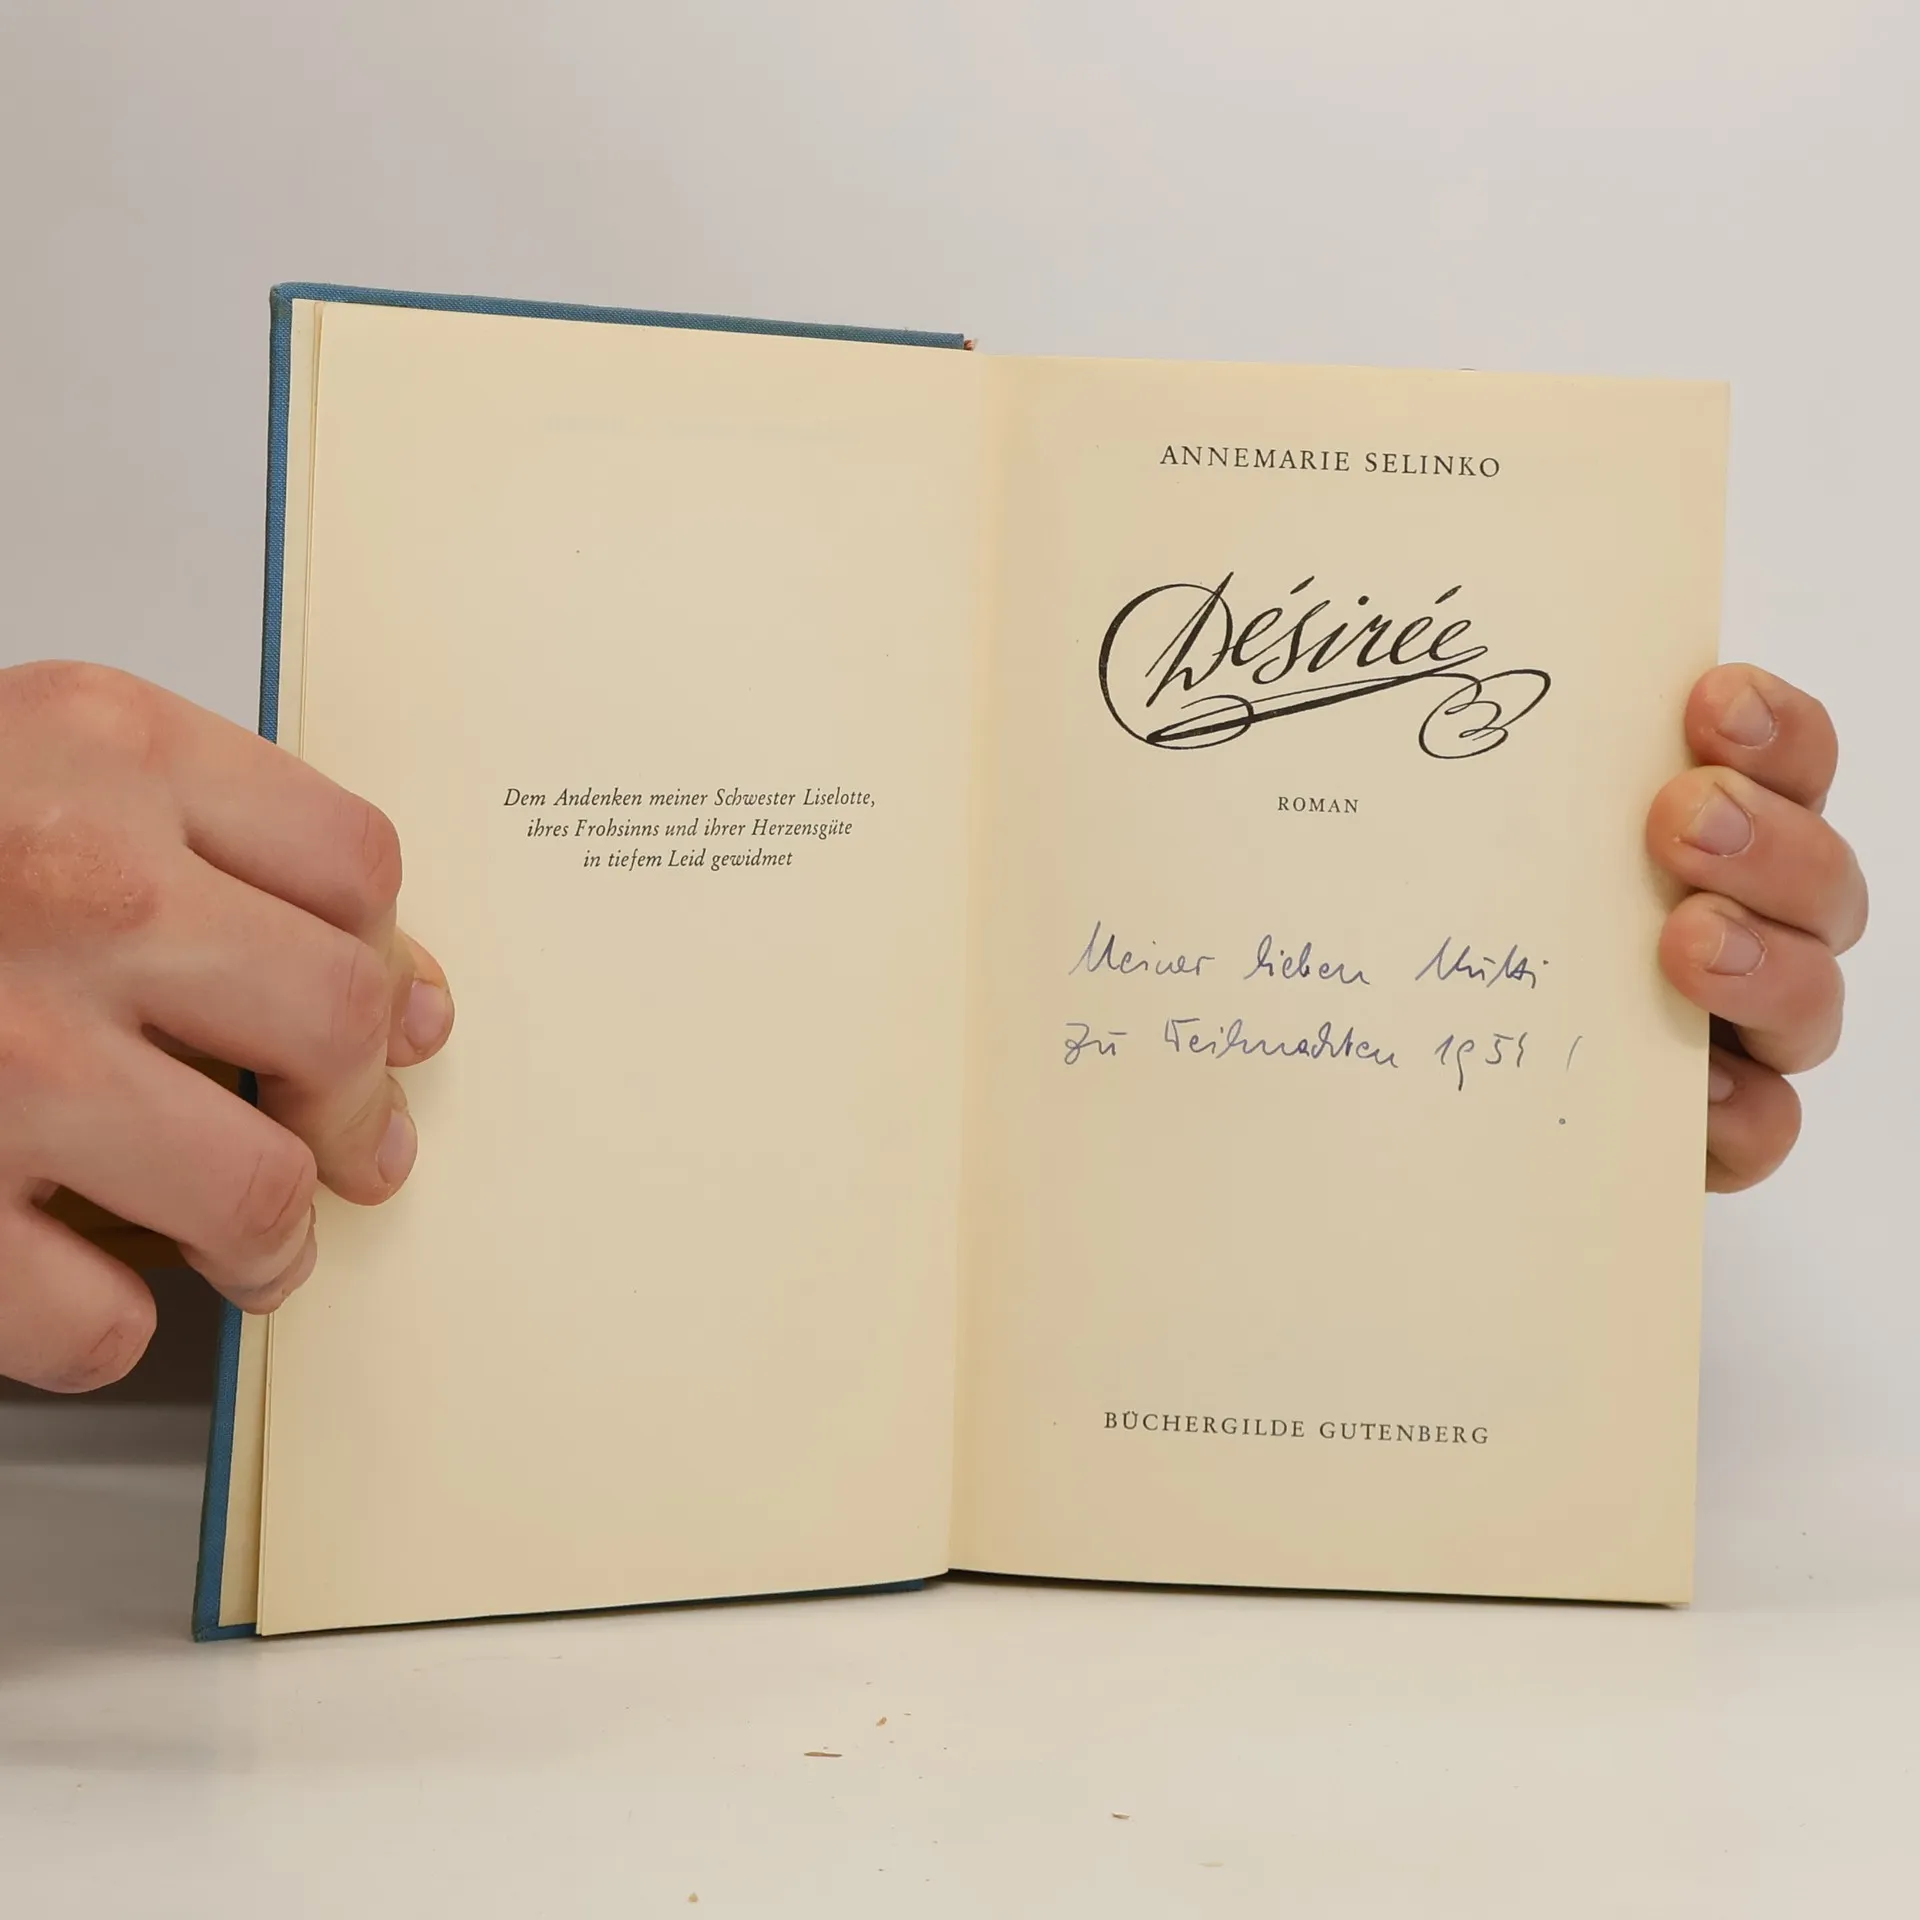 Dem Andenken meiner Schwester Liselotte,
ihres Frohsinns und ihrer Herzensgüte
in tiefem Leid gewidmet
ANNEMARIE SELINKO
Désirée
ROMAN
Meiner lieben Mutti
zu Weihnachten 1954 !
BÜCHERGILDE GUTENBERG